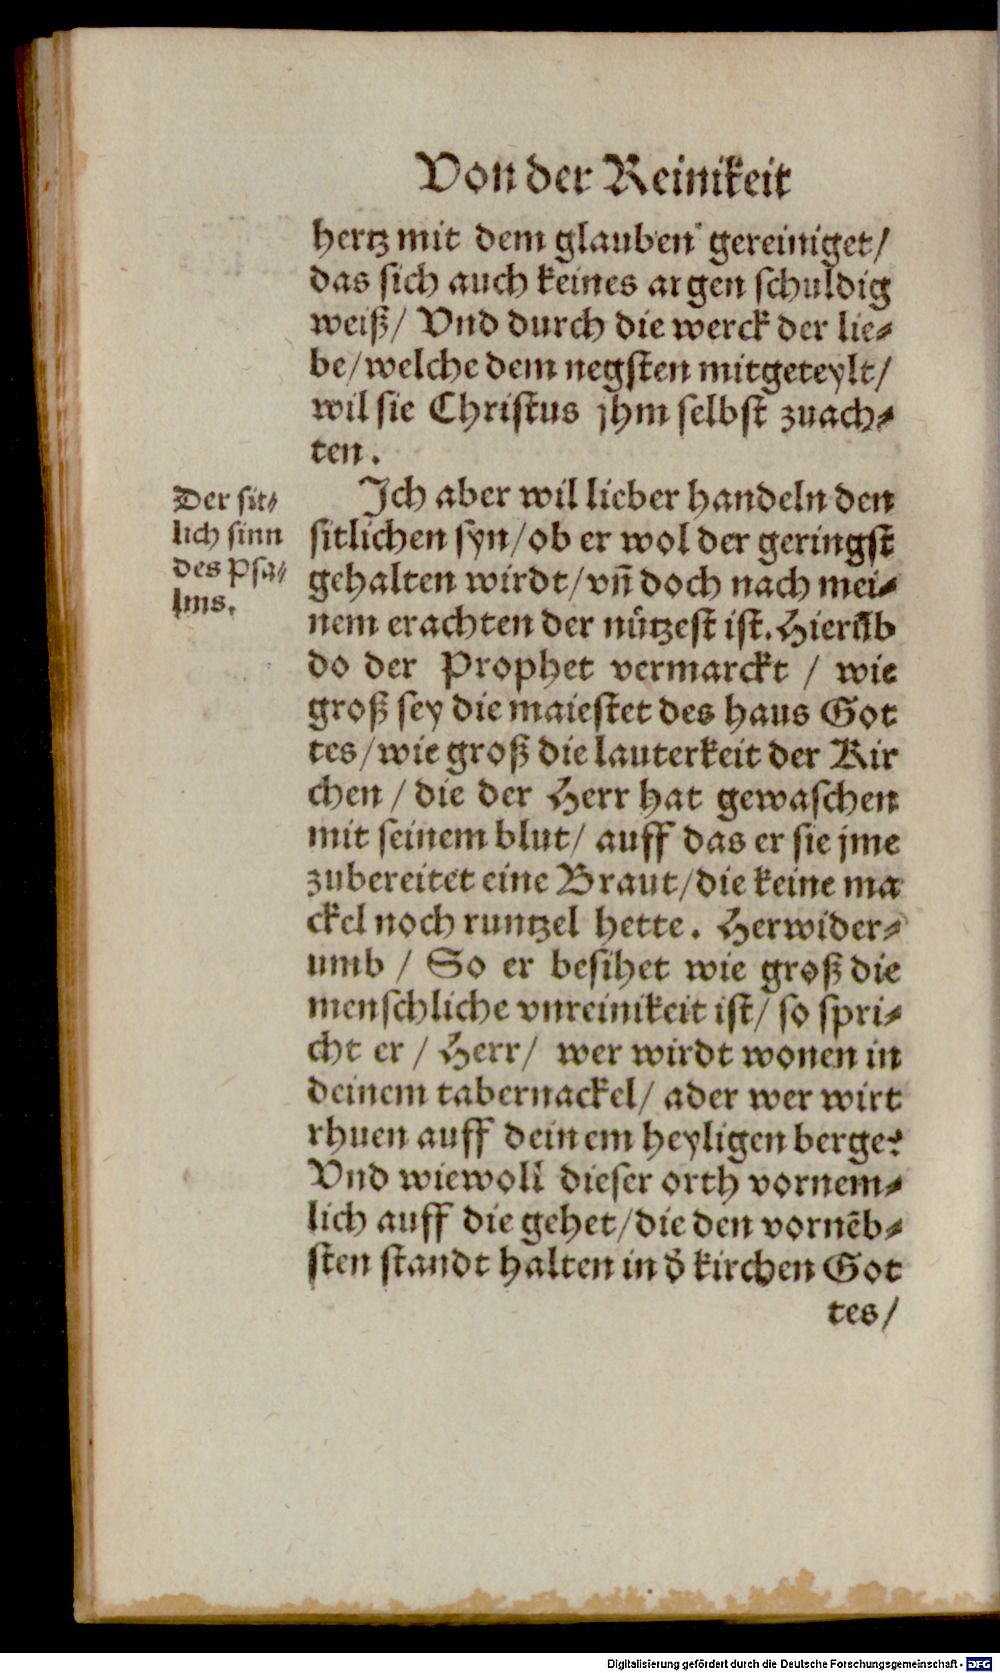 Von der Reinikeit
hertz mit dem glauben gereiniget/
das sich auch keines argen schuldig
weiß/ Vnd durch die werck der lie⸗
be/welche dem negsten mitgeteylt/
wil sie Christus jhm selbst zuach⸗
ten.
Der sit⸗
lich sinn
des Psa⸗
lms.
Ich aber wil lieber handeln den
sitlichen syn/ob er wol der geringst
gehalten wirdt/vñ doch nach mei⸗
nem erachten der nützest ist. Hierũb
do der Prophet vermarckt / wie
groß sey die maiestet des haus Got
tes/wie groß die lauterkeit der Kir
chen / die der Herr hat gewaschen
mit seinem blut/ auff das er sie jme
zubereitet eine Braut/die keine ma
ckel noch runtzel hette. Herwider⸗
umb / So er besihet wie groß die
menschliche vnreinikeit ist/ so spri⸗
cht er / Herr/ wer wirdt wonen in
deinem tabernackel/ ader wer wirt
rhuen auff deinem heyligen berge?
Vnd wiewoll dieser orth vornem⸗
lich auff die gehet/die den vornẽb⸗
sten standt halten in d̕ kirchen Got
tes/
Digitalisierung gefördert durch die Deutsche Forschungsgemeinschaft - DFG